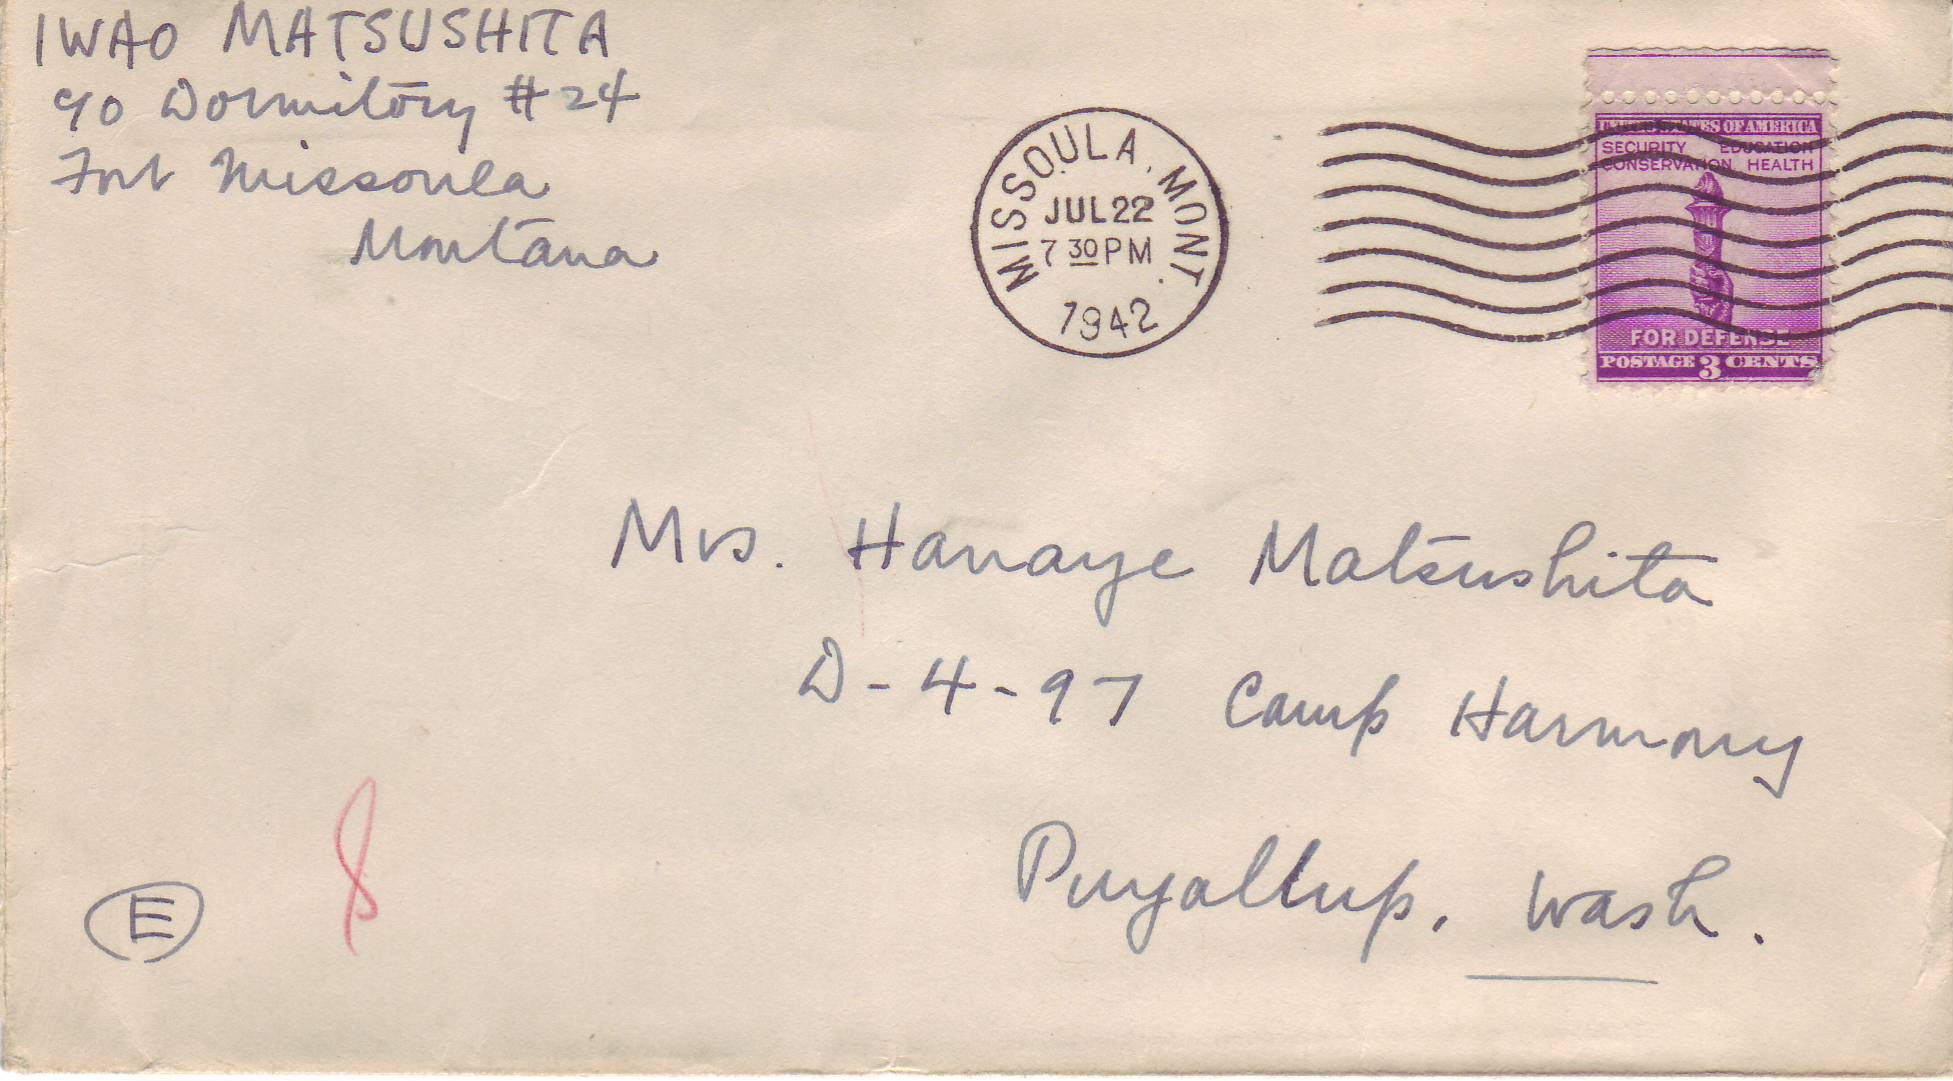 IWAO MATSUSHITA
c/o Dormitory #24
Fort Missoula
Montana
MISSOULA, MONT.
JUL 22
7 30 PM
1942
UNITED STATES OF AMERICA
SECURITY EDUCATION
CONSERVATION HEALTH
FOR DEFENSE
POSTAGE 3 CENTS
Mrs. Hanaye Matsushita
D-4-97 Camp Harmony
Puyallup, Wash.
E